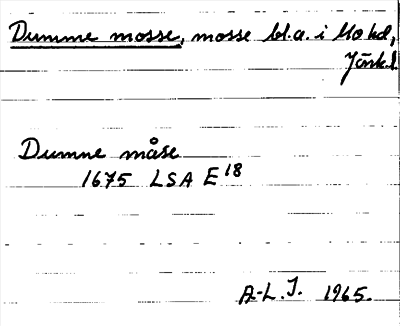 Dumme mosse, mosse bl.a. i Mo hd,
Jönk.l.
Dumne måse
1675 LSA E 18
A-L. J. 1965.